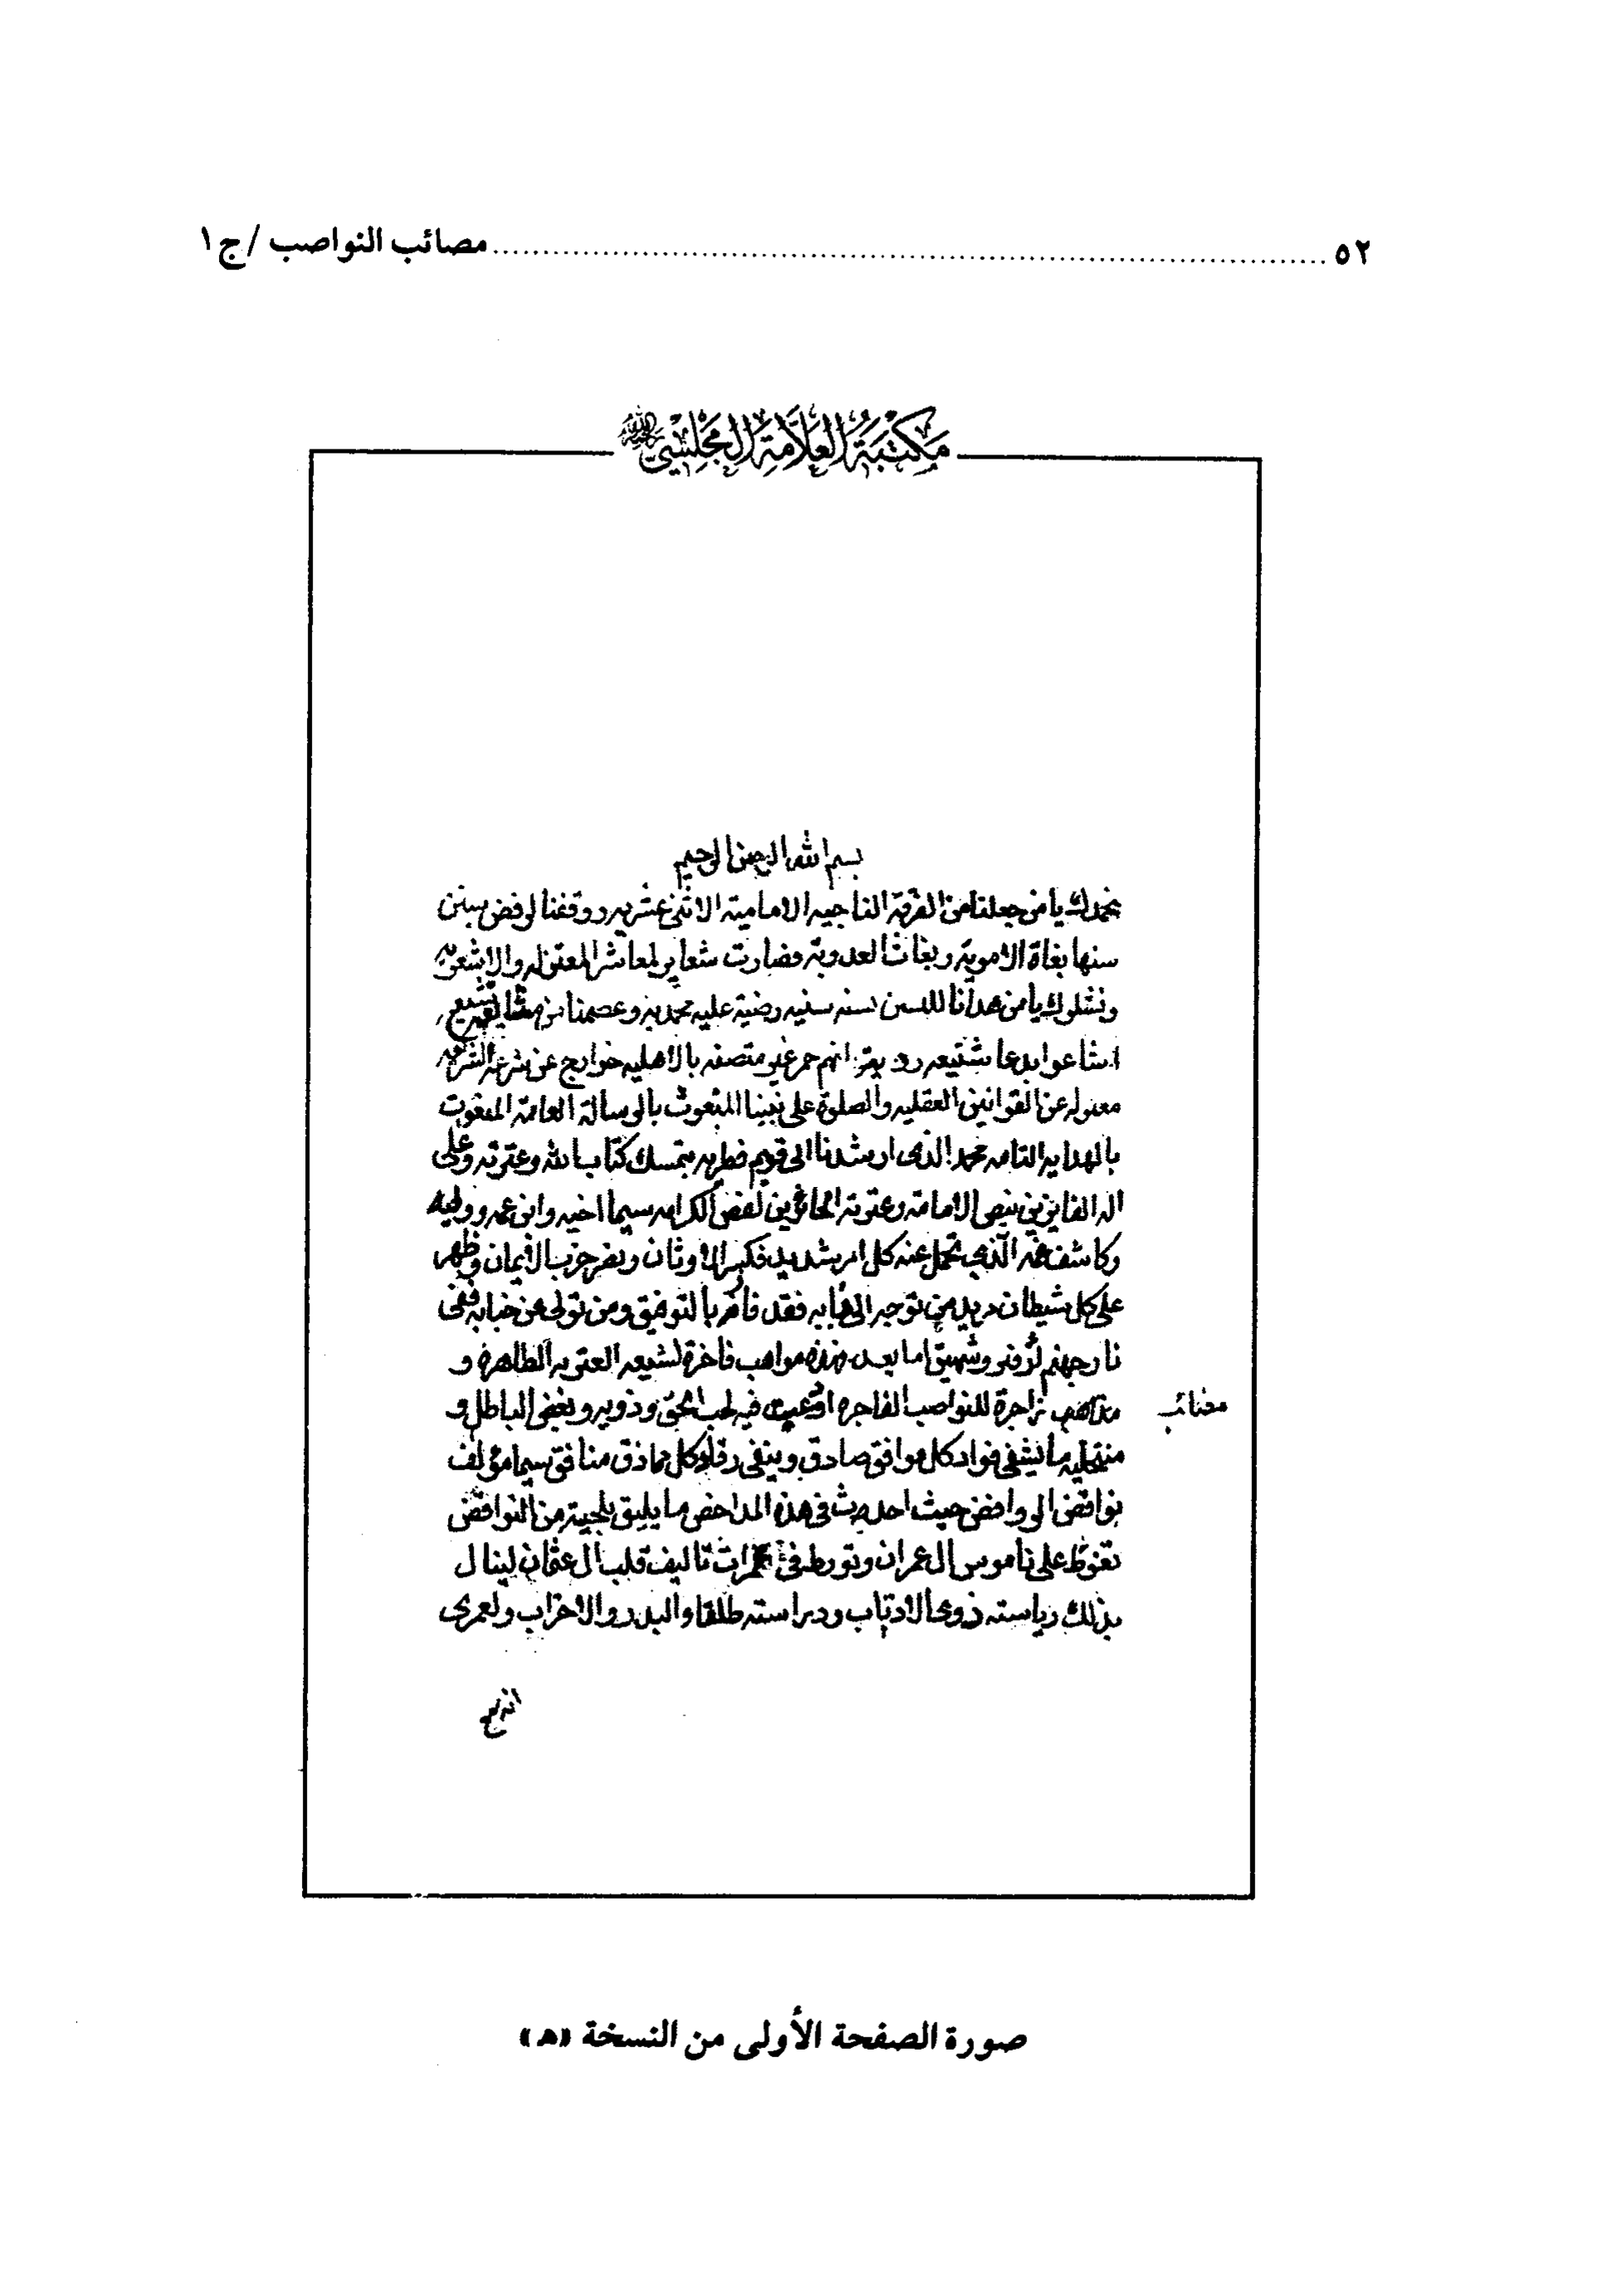 ٥٢ ........ مصائب النواصب / ج ١
مكتبة العلامة المجلسي
بسم الله الرحمن الرحيم
نحمدك يا من جعلنا من الفرقة الناجيه الامامية الاثنى عشريه ووقفنا لرفض سنن
سنها بغاة الاموية وبغات العدوية فصارت شعاير لمعاشر المعتزله والاشعريه
ونشكرك يا من هدانا للسنن سنه سنيه رضية عليه محمديه وعصمنا من
اشاعوا بدعا شنيعه انهم حمر غير متصفه بالاهليه خوارج عن شرعة الشرعيه
معزوله عن القوانين العقليه والصلوة على نبينا المبعوث بالرسالة العامة المنعوت
بالهدايه التامه محمد الذى ارشدنا الى قويم بتمسك كتاب الله وعترته وعلى
اله الفايزين بنص الامامة وعترته الحائزين لفض الكرامه سيما اخيه وابن عمه ووليه
وكاشف غمه الذى تحمل عنه كل امر شديد فكسر الاوثان ونصر حزب الايمان وظهر
على كل شيطان مريد من توجه الى فقد فاز بالتوفيق ومن تولى عن جنابه ففى
نار جهنم له زفير وشهيق اما بعد فهذه مواهب فاخرة لشيعه العتره الطاهره و
زاجرة للنواصب الفاجره اودعت فيه لحب الحق وذويه وبغض الباطل و
مصائب
منتحليه ما يشفى فواد كل موافق صادق وينفى رقاد كل مماذق منافق سيما مؤلف
نواقض الروافض حيث احدث فى هذه المداحض ما يليق بلحيته من النواقض
تغوط على ناموس ال عمران وتورط فى تاليف قلب ال عثمان لينال
بذلك رياسته ذوى الاذناب ودراسته طلقاء البدر والاحزاب ولعمرى
صورة الصفحة الأولى من النسخة «هـ»